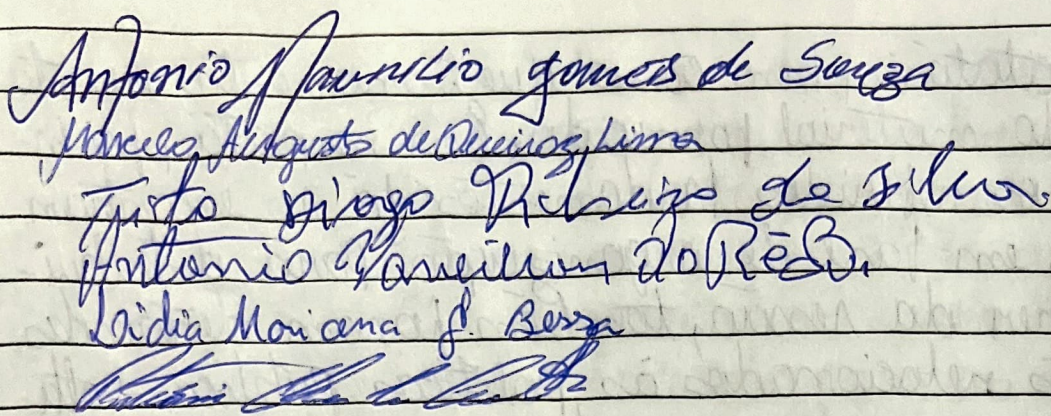 Antonio Maurilio Gomes de Souza
Marcelo Augusto de Queiroz Lima
Diogo Ribeiro da Silva
Antonio do Rêgo
Lidia Mariana F. Bessa